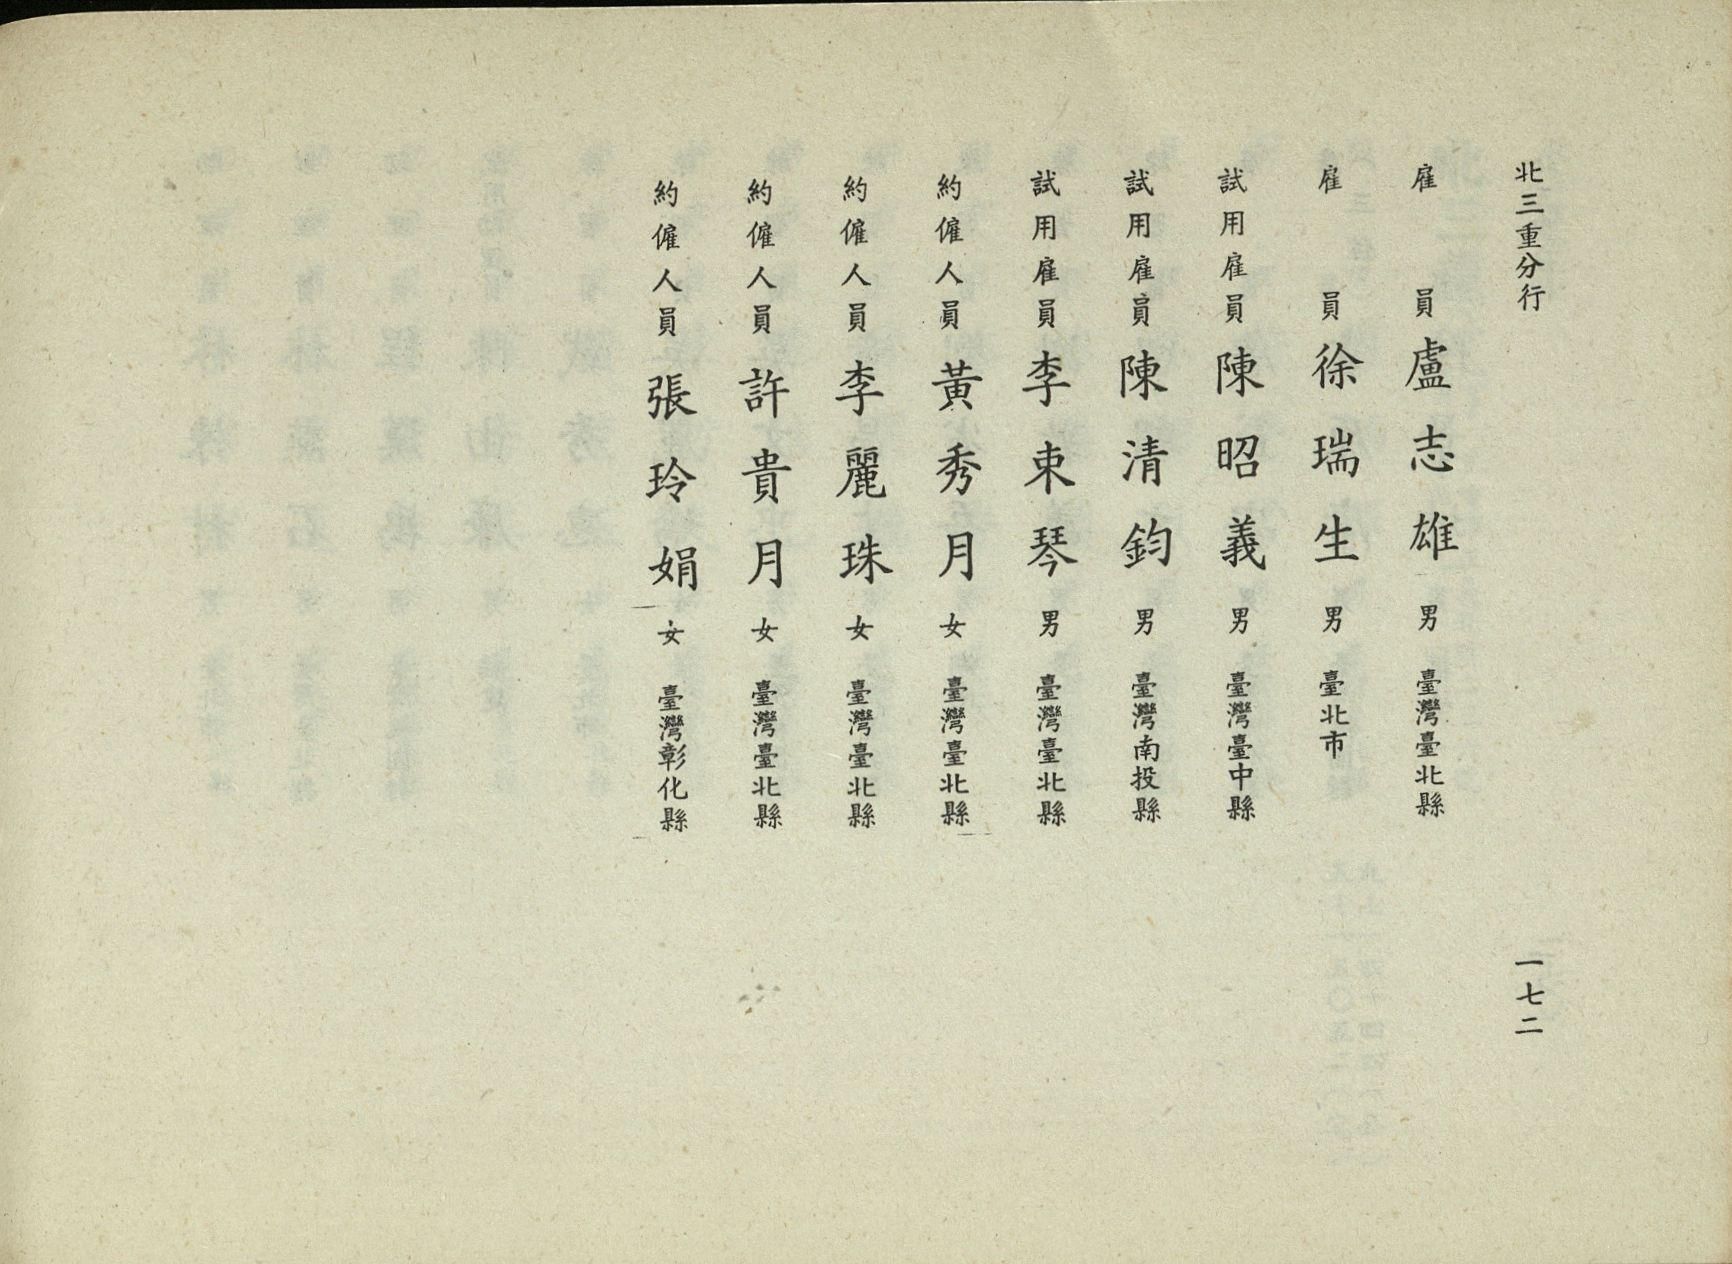 北三重分行
一七二
雇員 盧志雄 男 臺灣臺北縣
雇員 徐瑞生 男 臺北市
試用雇員 陳昭義 男 臺灣臺中縣
試用雇員 陳清鈞 男 臺灣南投縣
試用雇員 李束琴 男 臺灣臺北縣
約僱人員 黃秀月 女 臺灣臺北縣
約僱人員 李麗珠 女 臺灣臺北縣
約僱人員 許貴月 女 臺灣臺北縣
約僱人員 張玲娟 女 臺灣彰化縣